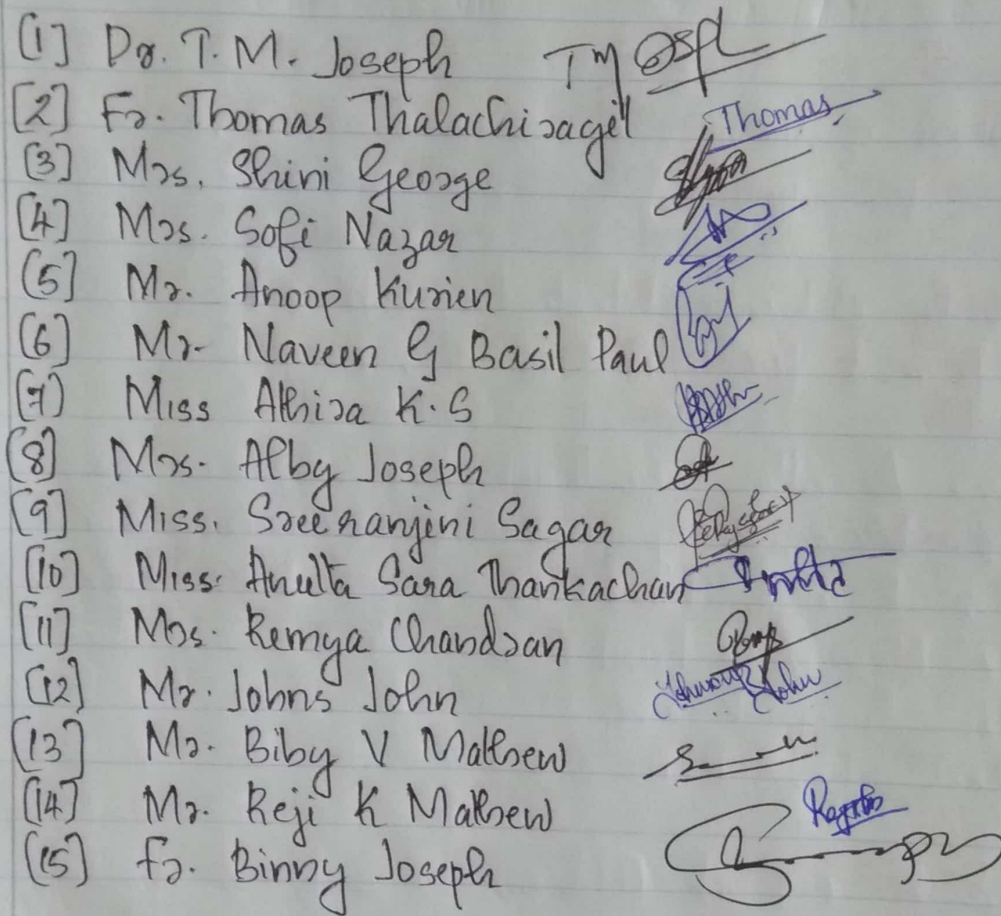 [1] Dr. T. M. Joseph
[2] Fr. Thomas Thalachiragil Thomas
[3] Mrs. Shini George
[4] Mrs. Sofi Nazar
[5] Mr. Anoop Kurien
[6] Mr. Naveen G Basil Paul
[7] Miss Athira K.S
[8] Mrs. Alby Joseph
[9] Miss. Sreeranjini Sagar
[10] Miss. Anulta Sara Thankachan
[11] Mrs. Remya Chandran
[12] Mr. Johns John
[13] Mr. Biby V Mathew
[14] Mr. Reji K Mathew
[15] Fr. Binny Joseph